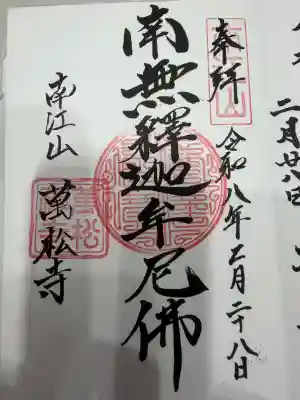 奉拜
令和八年二月二十八日
南無釋迦牟尼佛
南江山
萬松寺
二月廿八日